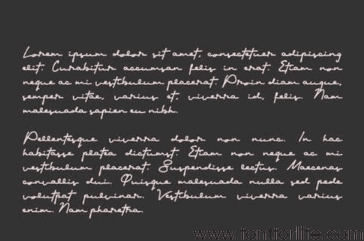 Lorem ipsum dolor sit amet, consectetuer adipiscing
elit. Curabitur accumsan felis in erat. Etiam non
neque ac mi vestibulum placerat. Proin diam augue,
semper vitae, varius et, viverra id, felis. Nam
malesuada sapien eu nibh.
Pellentesque viverra dolor non nunc. In hac
habitasse platea dictumst. Etiam non neque ac mi
vestibulum placerat. Suspendisse lectus. Maecenas
convallis dui. Quisque malesuada nulla sed pede
volutpat pulvinar. Vestibulum viverra varius
enim. Nam pharetra.
www.fontforlife.com